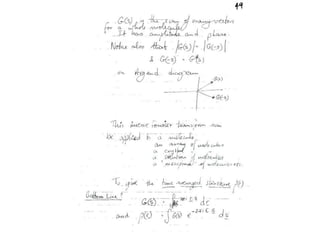 49
G(s) is the sum of many vectors
for a whole molecule
It has amplitude and phase.
Notice also that |G(s)| = |G(-s)|
& G(-s) = G*(s)
on Argand diagram
G(s)
G(-s)
This inverse Fourier transform can
be applied to a molecule
an array of molecules
a crystal
a solution of molecules
a membrane of molecules etc.
To give the time averaged structure
Bottom Line
and